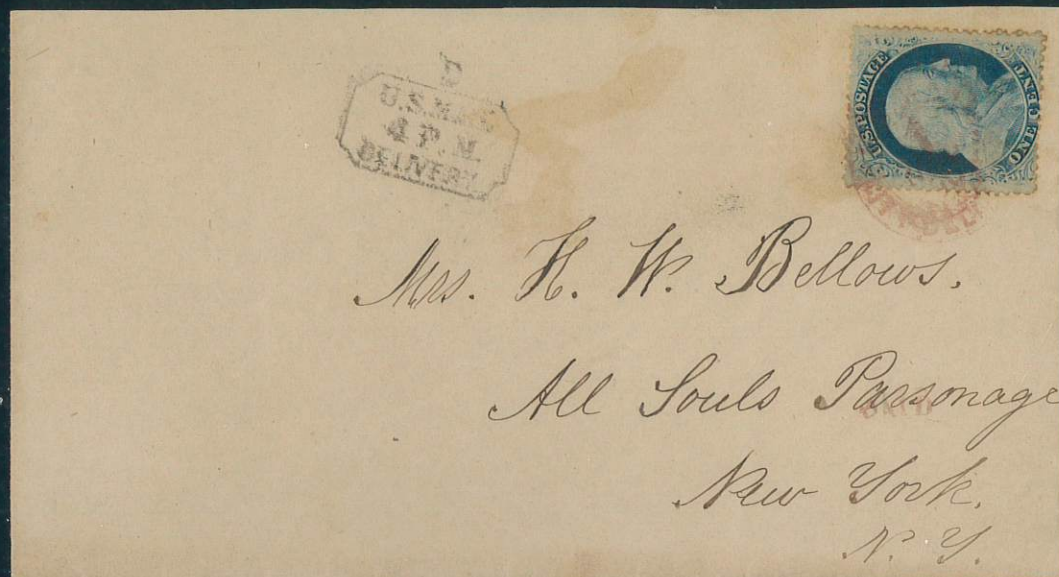 D
U.S. MAIL
4 P.M.
DELIVERY
U.S. POSTAGE
ONE CENT
CITY DEL
Mrs. H. W. Bellows.
All Souls Parsonage
PAID
New York.
N. Y.